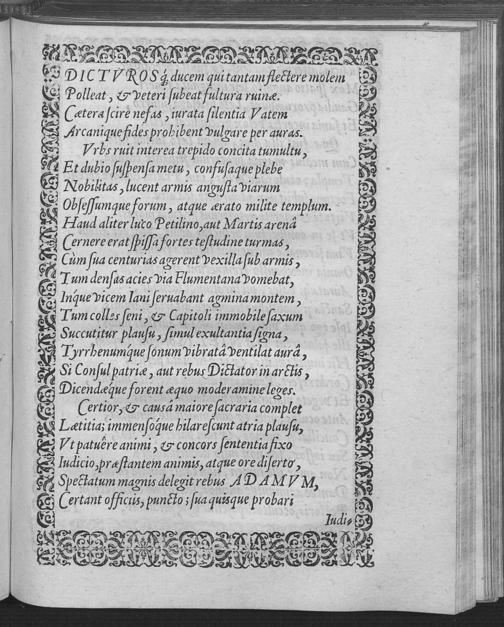 DICTVROSq́; ducem qui tantam flectere molem
Polleat, & veteri subeat fultura ruinæ.
Cætera scire nefas, iurata silentia Vatem
Arcanique fides prohibent vulgare per auras.
Vrbs ruit interea trepido concita tumultu,
Et dubio suspensa metu, confusaque plebe
Nobilitas, lucent armis angusta viarum
Obsessumque forum, atque ærato milite templum.
Haud aliter luco Petilino, aut Martis arenâ
Cernere erat spissa fortes testudine turmas,
Cùm sua centurias agerent vexilla sub armis,
Tum densas acies via Flumentana vomebat,
Inque vicem Iani seruabant agmina montem,
Tum colles seni, & Capitoli immobile saxum
Succutitur plausu, simul exultantia signa,
Tyrrhenumque sonum vibratâ ventilat aurâ,
Si Consul patriæ, aut rebus Dictator in arctis,
Dicendæque forent æquo moderamine leges.
Certior, & causâ maiore sacraria complet
Lætitia; immensoque hilarescunt atria plausu,
Vt patuêre animi, & concors sententia fixo
Iudicio, præstantem animis, atque ore diserto,
Spectatum magnis delegit rebus ADAMVM,
Certant officiis, puncto; sua quisque probari
Iudi-